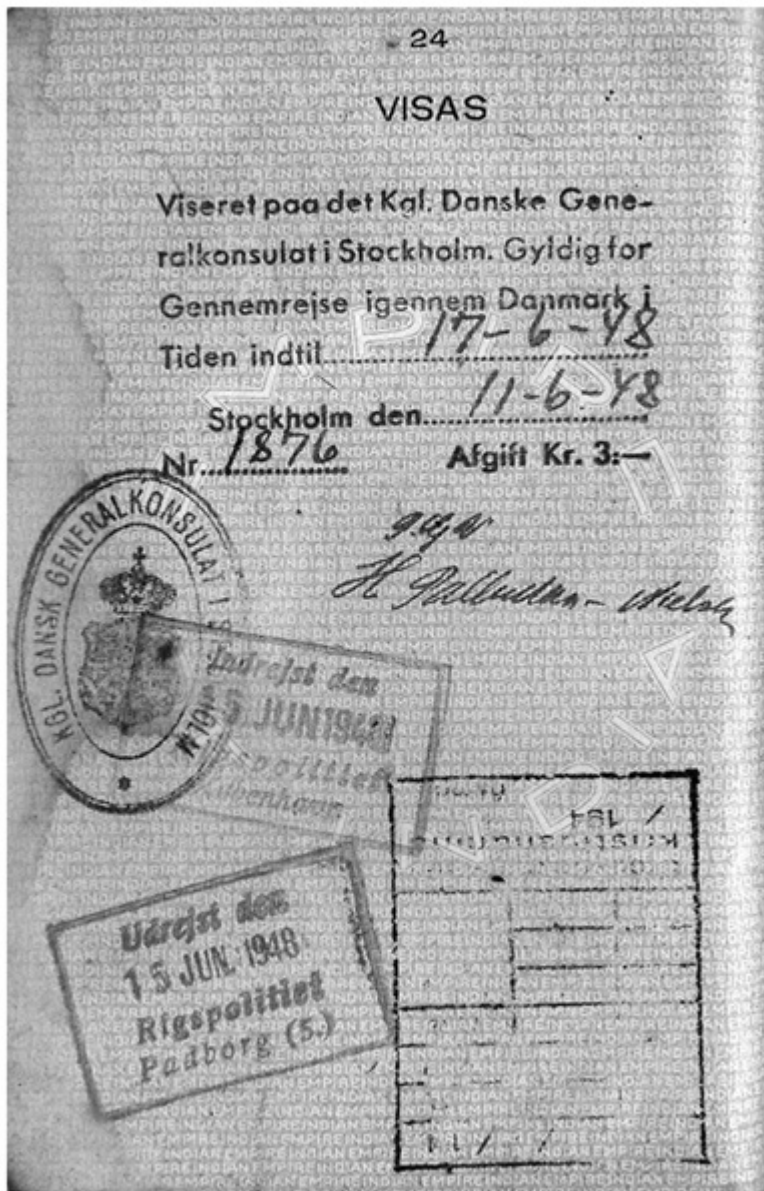 24
VISAS
Viseret paa det Kgl. Danske Gene-
ralkonsulat i Stockholm. Gyldig for
Gennemrejse igennem Danmark i
Tiden indtil 17-6-48
Stockholm den 11-6-48
Nr. 1876 Afgift Kr. 3:—
KGL. DANSK GENERALKONSULAT I
H
Indrejst den
5 JUN 1948
København
194
Udrejst den
15 JUN. 1948
Rigspolitiet
Padborg (S.)